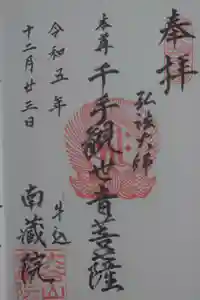 奉拝
弘法大師
本尊
千手観世音菩薩
牛込
南蔵院
令和五年
十二月廿三日